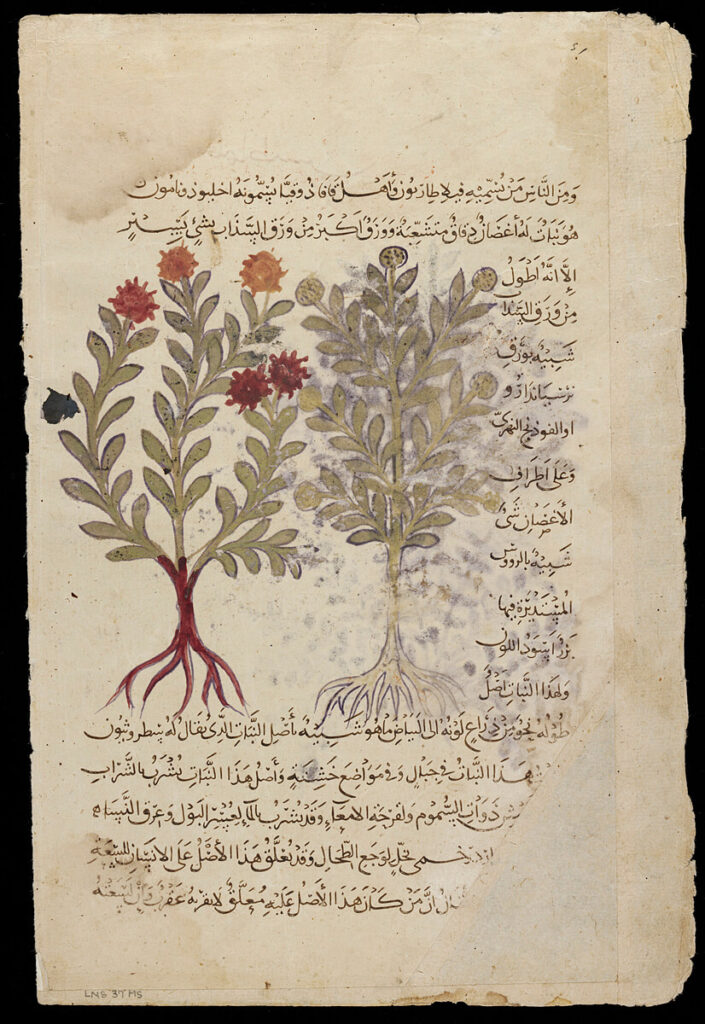 ومن الناس من يسميه فيلاطاريون وأهل قاقاذوقيا يسمونه اخليوذوناموس
هو نبات له أغصان دقاق متشعبة وورق أكبر من ورق السذاب بشيء يسير
إلا أنه أطول
من ورق السذاب
شبيه بورق
أو الفوذنج النهري
وعلى أطراف
الأغصان شيء
شبيه بالرووس
المستديرة فيها
بزر أسود اللون
ولهذا النبات أصل
طوله نحو من ذراع لونه إلى البياض ما هو شبيه بأصل النبات الذي يقال له سطروثيون
هذا النبات في جبال وفي مواضع خشنة وأصل هذا النبات يشرب بالشراب
ذوات السموم ولقرحة الامعاء وقد يشرب بالماء لعسر البول وعرق النساء
بخل لوجع الطحال وقد يعلق هذا الأصل على الانسان للسعة
أن من كان هذا الأصل عليه معلق لا يقربه عقرب وأن لسعته
LNS 37 MS